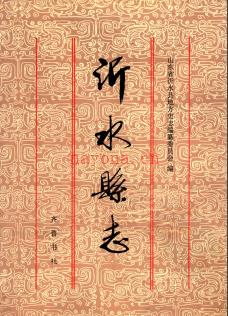 山东省沂水县地方史志编纂委员会 编
沂水縣志
齐鲁书社
nayona.cn